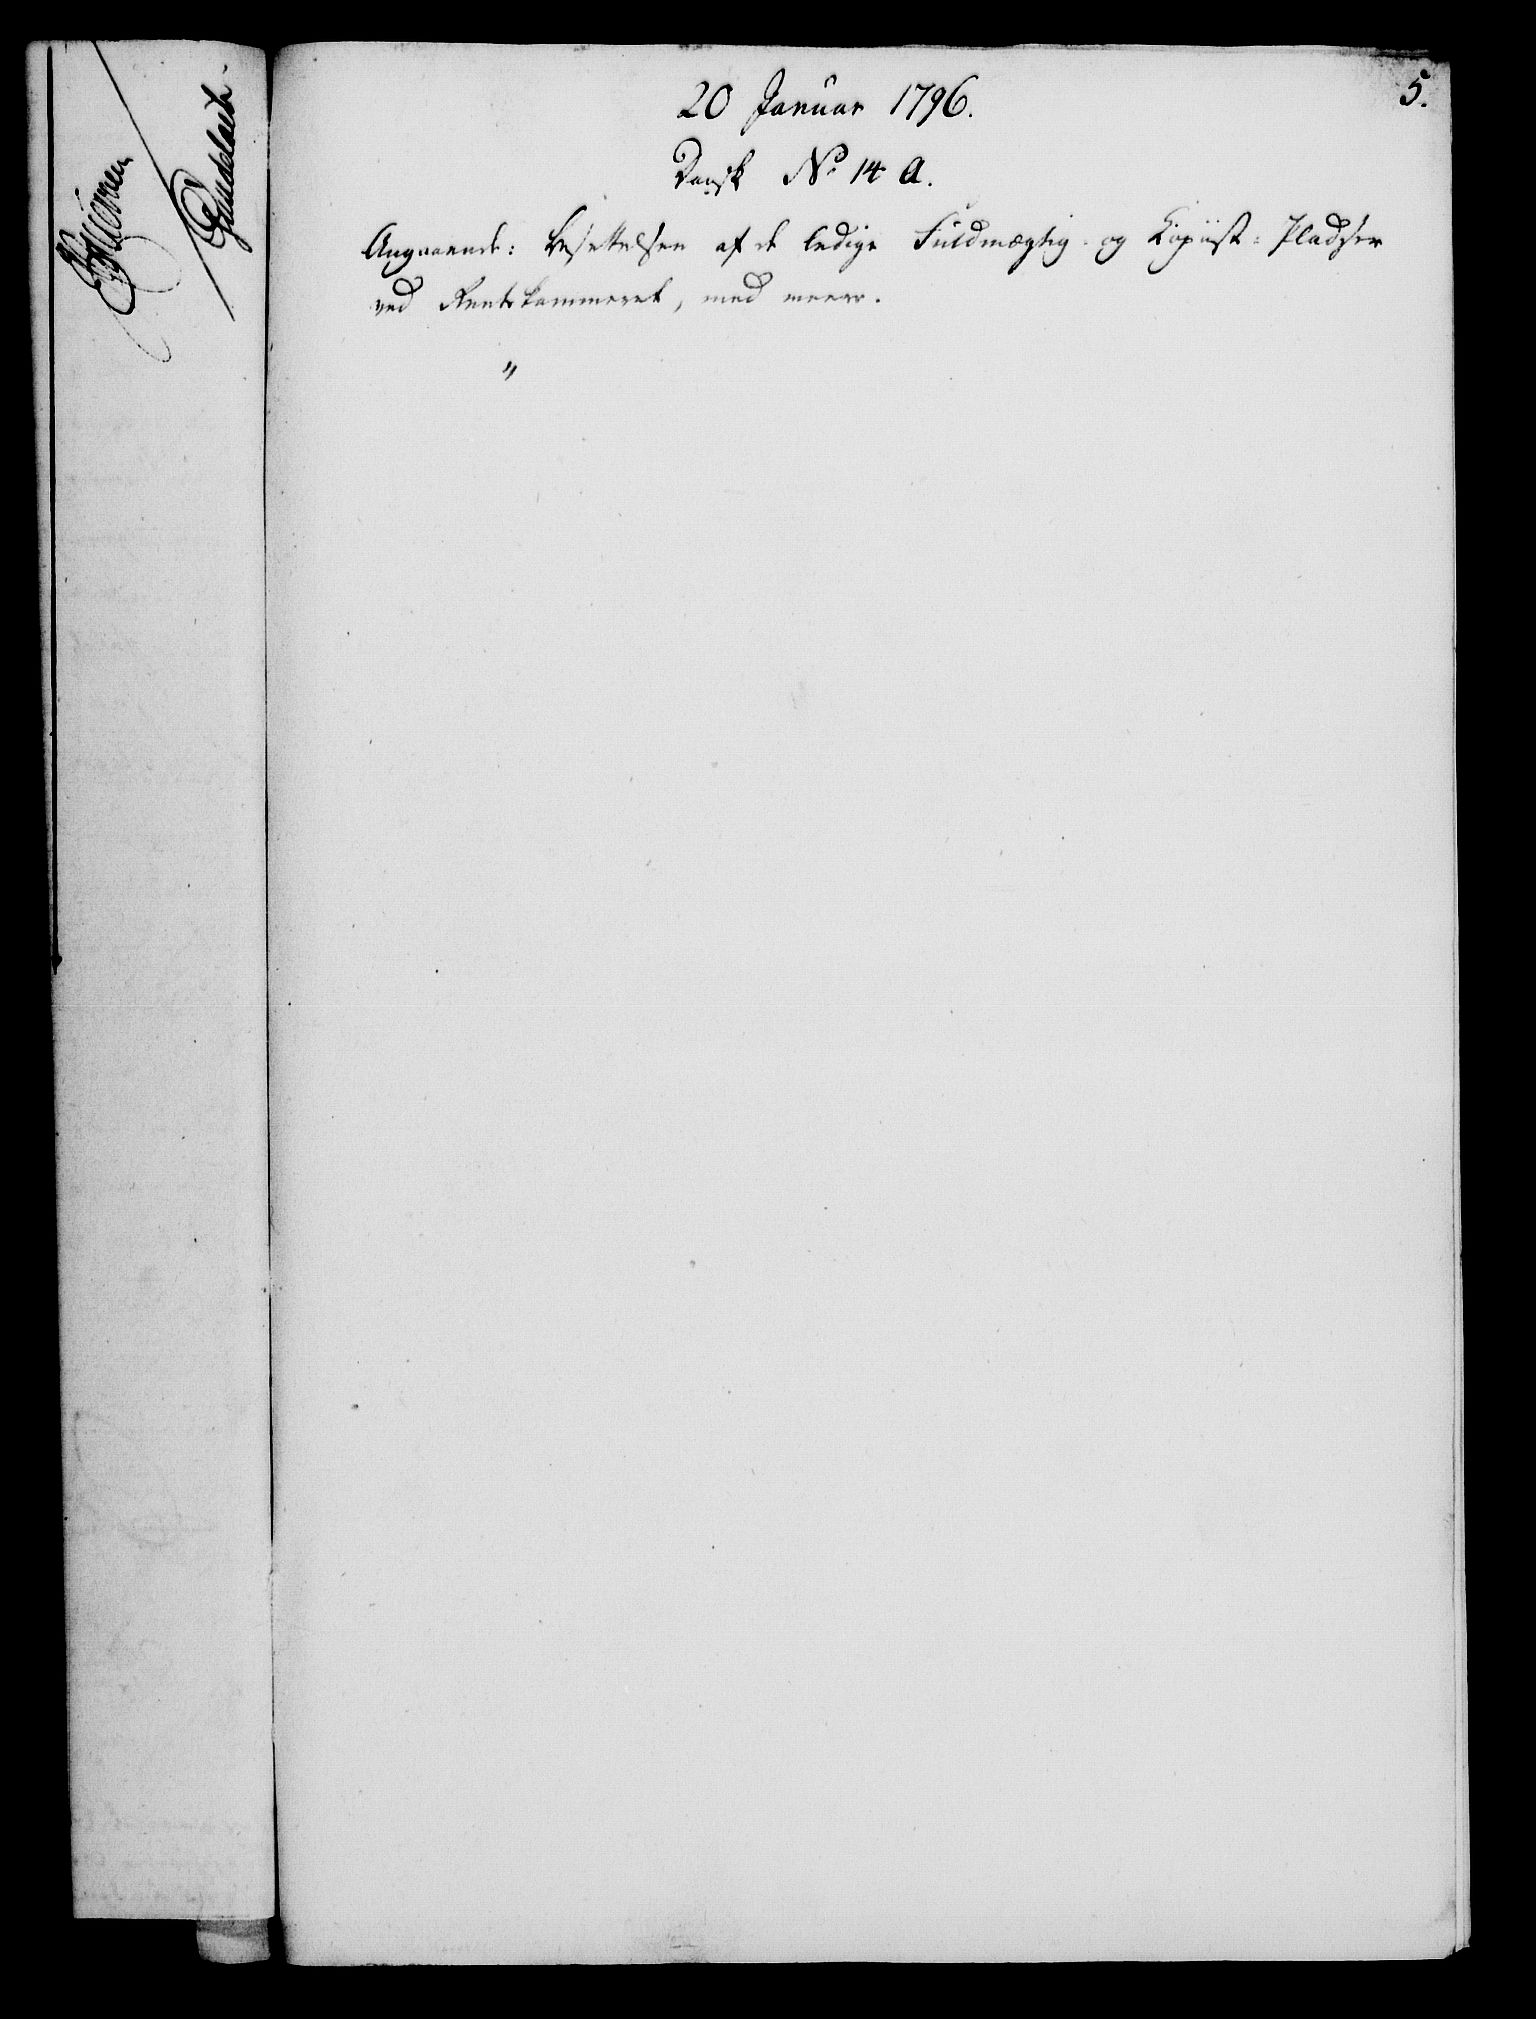 5.
20 Januar 1796.
Dansk No 14 A.
Angaaende: Besettelsen af de ledige Fuldmægtig- og Kopiist-Pladser
ved Rentekammeret, med meere.
"